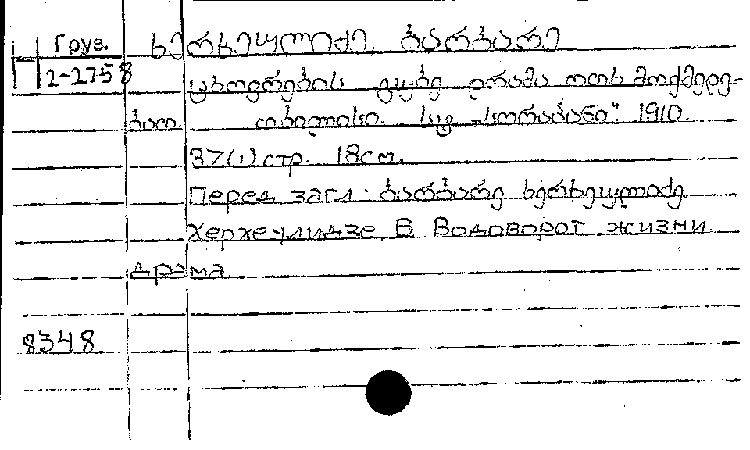 Груз. ხერხეულიძე ბარბარე
2-2758 ცხოვრების გუბე დრამა ოთხ მოქმედე-
ბათ. თბილისი. სტ. „სორაპანი“. 1910.
37(1) стр. 18 см.
Перед загл: ბარბარე ხერხეულიძე
Херхеулидзе. В Водоворот жизни
драма
8348